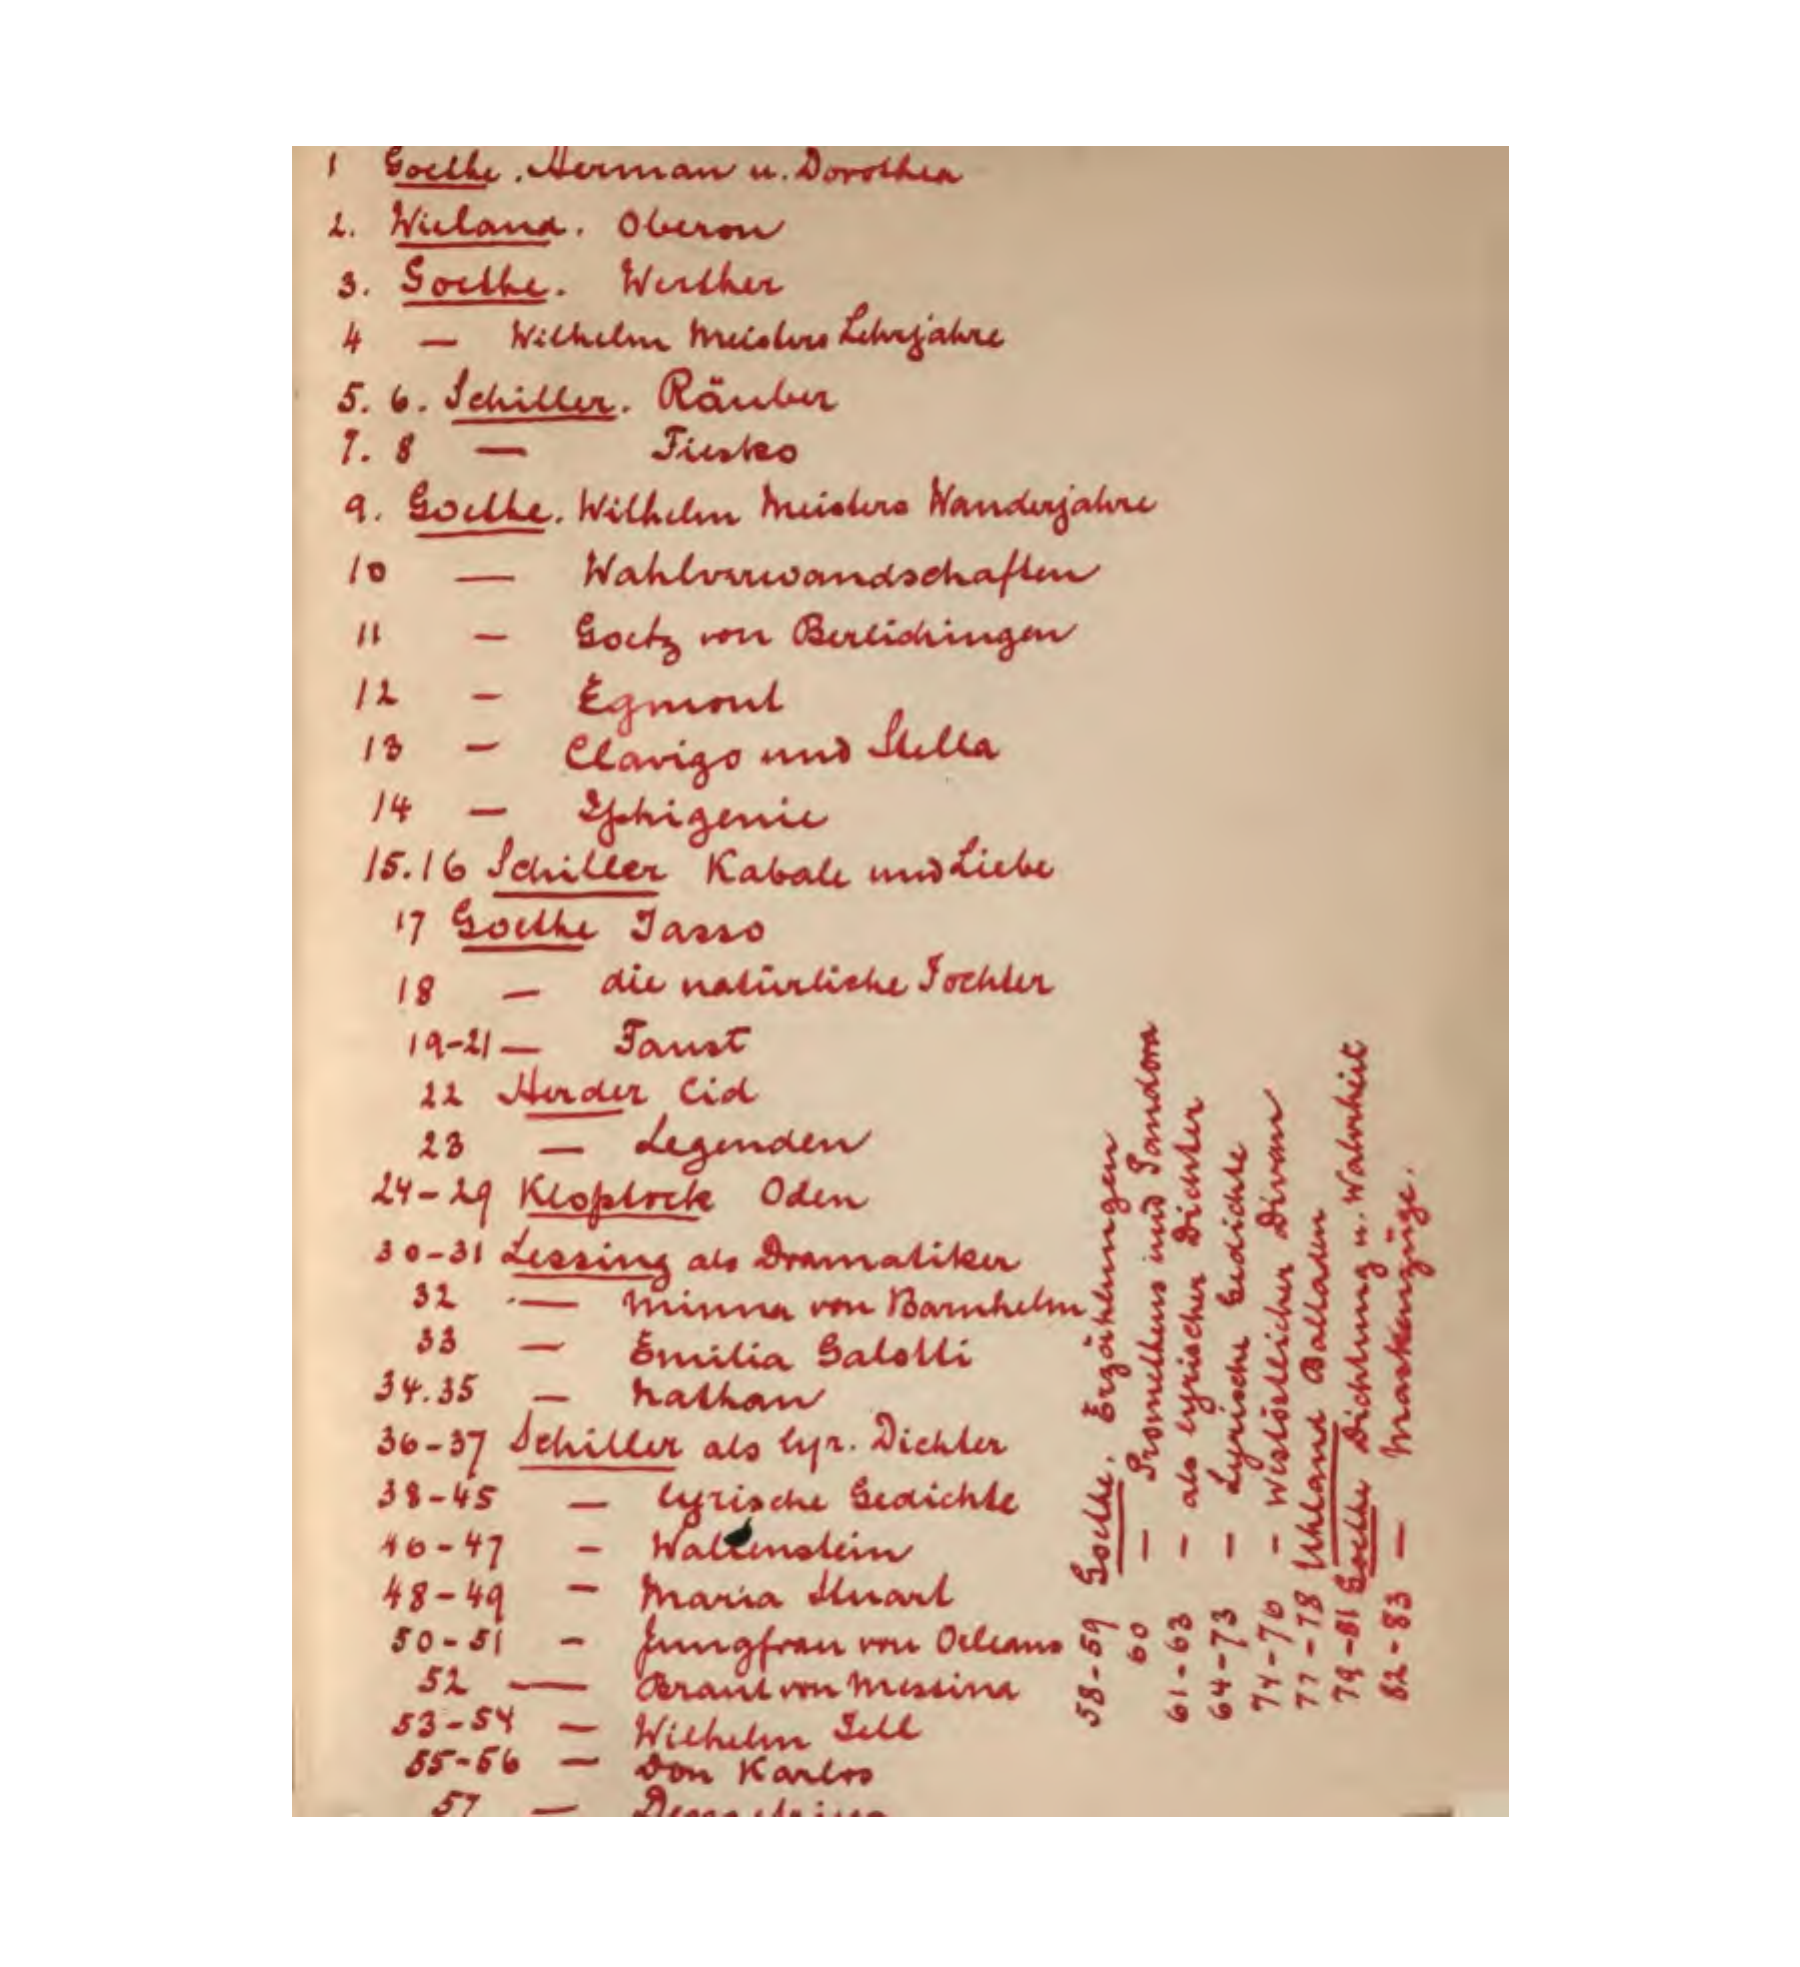 1 Goethe. Herman u. Dorothea
2. Wieland. Oberon
3. Goethe. Werther
4 — Wilhelm Meisters Lehrjahre
5. 6. Schiller. Räuber
7. 8 — Fiesko
9. Goethe. Wilhelm Meisters Wanderjahre
10 — Wahlverwandschaften
11 — Goetz von Berlichingen
12 — Egmont
13 — Clavigo und Stella
14 — Iphigenie
15.16 Schiller Kabale und Liebe
17 Goethe Tasso
18 — die natürliche Tochter
19-21 — Faust
22 Herder Cid
23 — Legenden
24-29 Klopstock Oden
30-31 Lessing als Dramatiker
32 — Minna von Barnhelm
33 — Emilia Galotti
34.35 — Nathan
36-37 Schiller als lyr. Dichter
38-45 — lyrische Gedichte
46-47 — Wallenstein
48-49 — Maria Stuart
50-51 — Jungfrau von Orleans
52 — Braut von Messina
53-54 — Wilhelm Tell
55-56 — Don Karlos
57 — Demetrius
58-59 Goethe. Erzählungen
60 — Prometheus und Pandora
61-63 — als lyrischer Dichter
64-73 — Lyrische Gedichte
74-76 — Westöstlicher Divan
77-78 Uhland Balladen
79-81 Goethe Dichtung u. Wahrheit
82-83 — Maskenzüge.